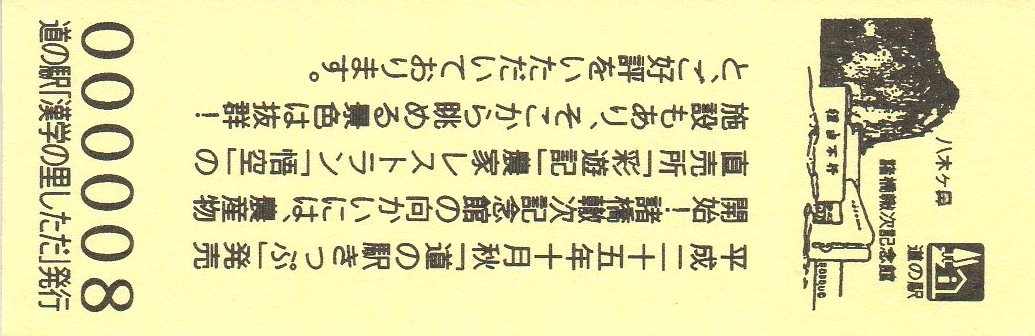 道の駅
諸橋轍次記念館
八木ヶ鼻
行不由径
平成二十五年十月秋「道の駅きっぷ」発売
開始！諸橋轍次記念館の向かいには、農産物
直売所「彩遊記」農家レストラン「悟空」の
施設もあり、そこから眺める景色は抜群！
と、ご好評をいただいております。
000008
道の駅「漢学の里しただ」発行